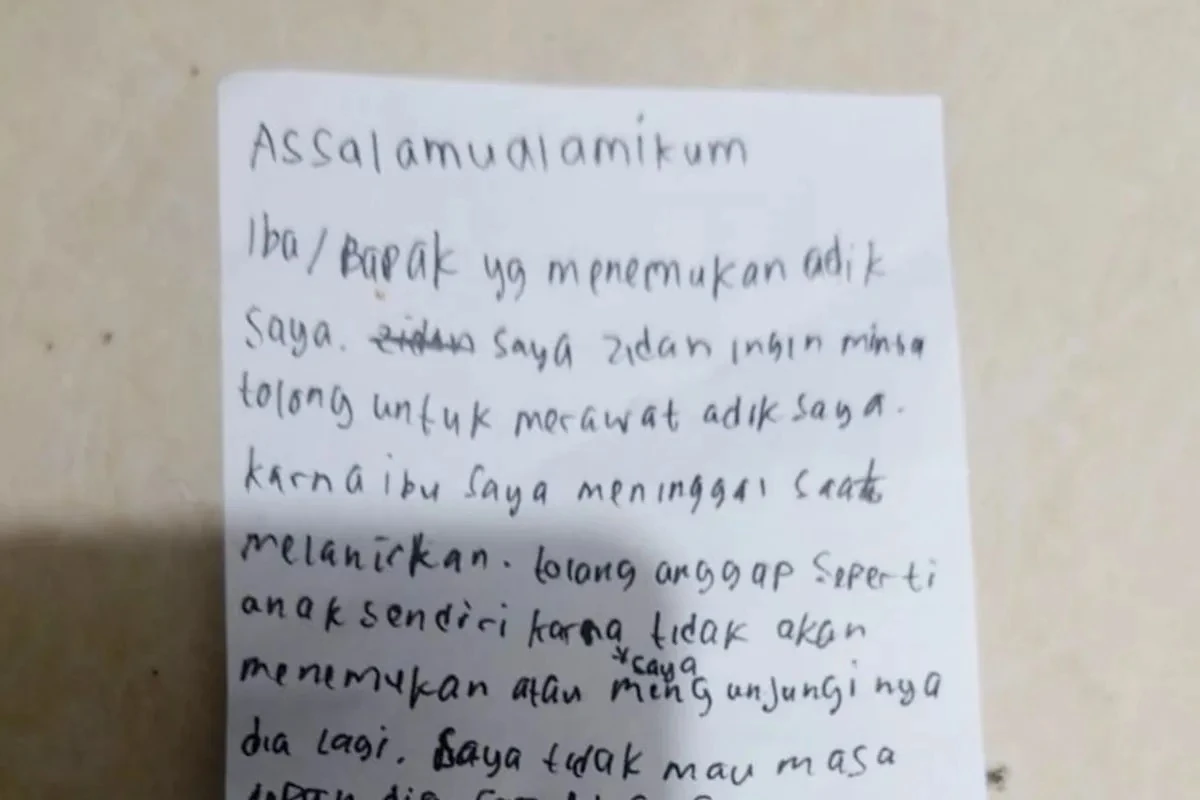 Assalamualamikum
Iba/Bapak yg menemukan adik
saya. zidan saya zidan ingin minta
tolong untuk merawat adik saya.
karna ibu saya meninggal saat
melahirkan. tolong anggap seperti
anak sendiri karna tidak akan
*saya
menemukan atau mengunjungi nya
dia lagi. Saya tidak mau masa